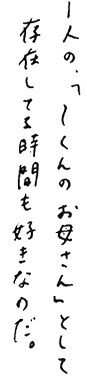 一人の、「しくんのお母さん」として
存在してる時間も好きなのだ。